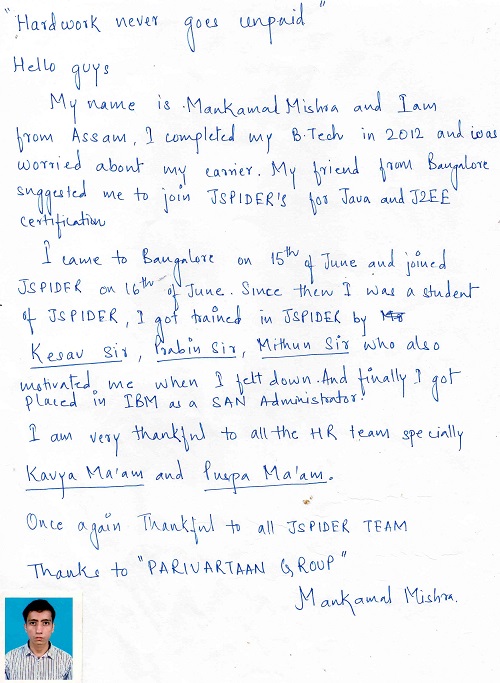 "Hardwork never goes unpaid"
Hello guys
My name is Mankamal Mishra and I am
from Assam, I completed my B.Tech in 2012 and was
worried about my carrier. My friend from Bangalore
suggested me to join JSPIDER'S for Java and J2EE
certification
I came to Bangalore on 15th of June and joined
JSPIDER on 16th of June. Since then I was a student
of JSPIDER, I got trained in JSPIDER by
Kesav Sir, Prabin Sir, Mithun Sir who also
motivated me when I felt down. And finally I got
placed in IBM as a SAN Administrator.
I am very thankful to all the HR team specially
Kavya Ma'am and Puspa Ma'am.
Once again Thankful to all JSPIDER TEAM
Thanks to "PARIVARTAAN GROUP"
Mankamal Mishra.